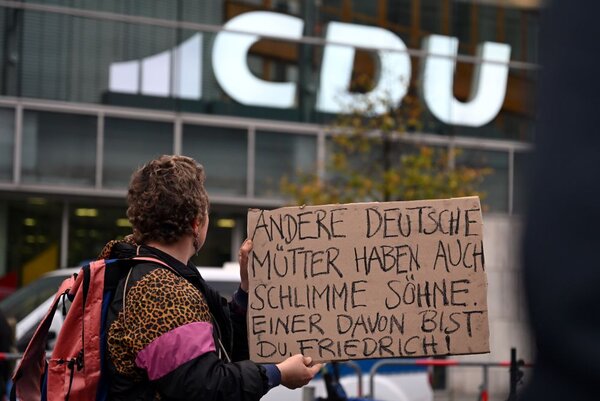 CDU
ANDERE DEUTSCHE
MÜTTER HABEN AUCH
SCHLIMME SÖHNE.
EINER DAVON BIST
DU, FRIEDRICH!